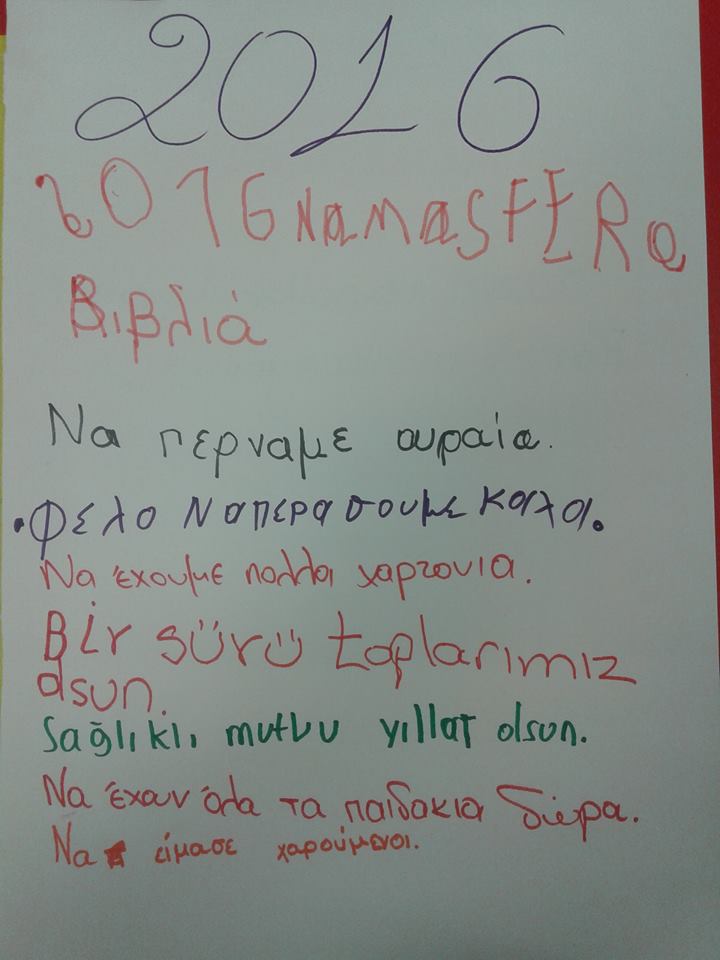 2016
2016 NaMaSFERa
Βιβλιά
Να περναμε ουραία.
•Φελο Ναπερασουμε καλα.
Να έχουμε πολλοι χαρτονια.
Bir sürü toplarımız
olsun.
Sağlıklı, mutlu yıllar olsun.
Να έχουν όλα τα παιδακια δώρα.
Να είμασε χαρούμενοι.